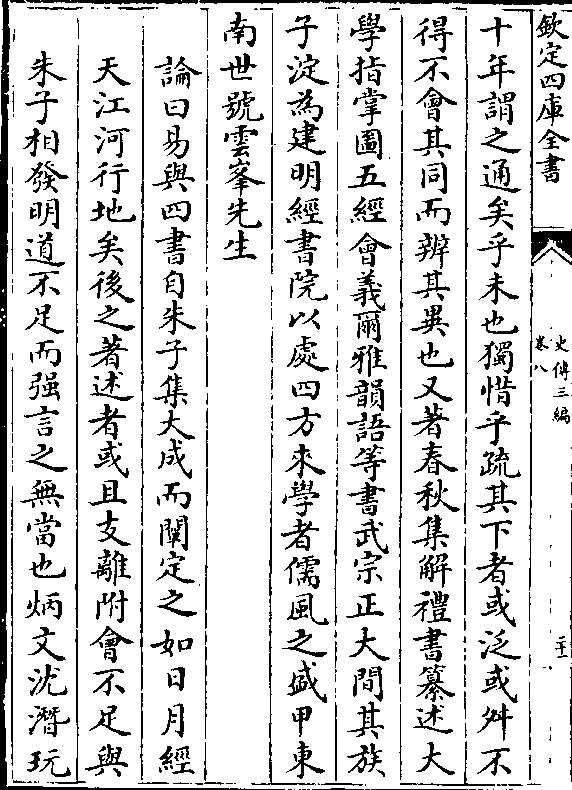 欽定四庫全書
史傳三編
卷八
二十一
十年謂之通矣乎未也獨惜乎疏其下者或泛或舛不
得不會其同而辨其異也又著春秋集解禮書纂述大
學指掌圖五經會義爾雅韻語等書武宗正大間其族
子淀為建明經書院以處四方來學者儒風之盛甲東
南世號雲峯先生
論曰易與四書自朱子集大成而闡定之如日月經
天江河行地矣後之著述者或且支離附會不足與
朱子相發明道不足而强言之無當也炳文沈潛玩